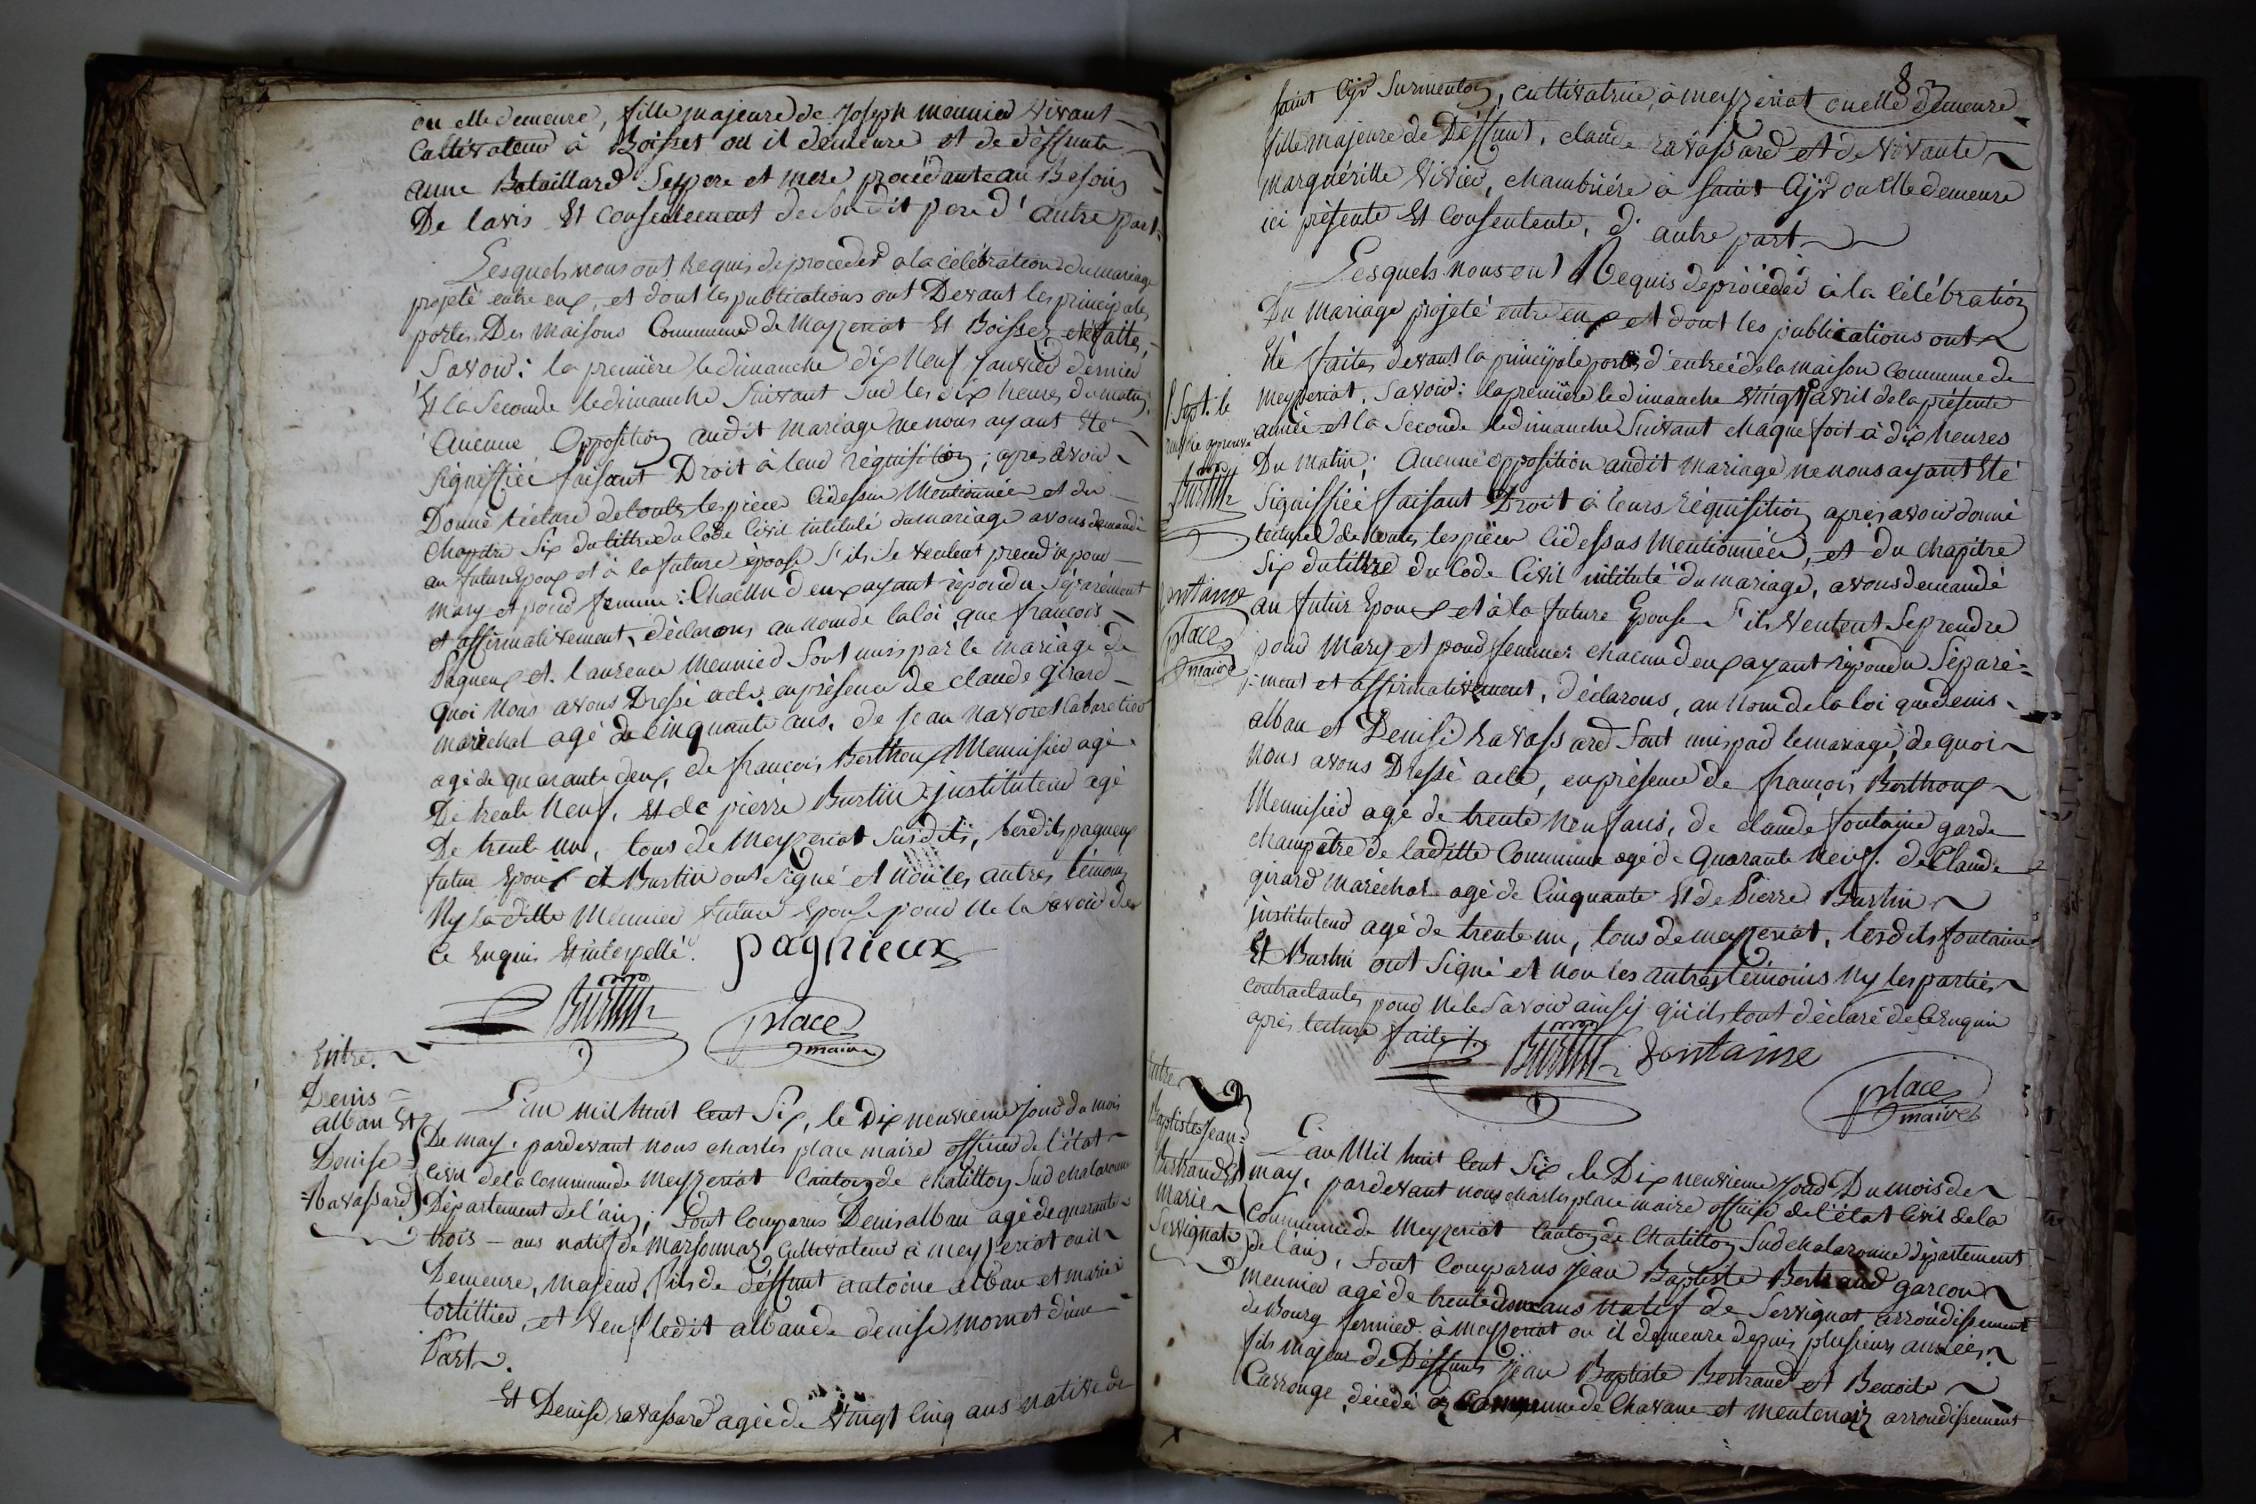 ou elle demeure, fille majeure de Joseph meunier vivant
Cultivateur à Boisset ou il demeure et de déffunte
anne Bataillard Ses pere et mere procédante au Besoin
De lavis Et Consentement de Sondit pere d'autre part
Lesquels nous ont Requis de proceder a la célébration du mariage
projeté entre eux, et dont les publications ont Devant les principales
portes Des maisons Communes de Mayzeriat Et Boissey été faites,
Savoir: la première le dimanche dix Neuf Janvier dernier
Et la Seconde le dimanche Suivant Sur les dix heures du matin,
Aucune Opposition audit Mariage ne nous ayant Été
Signiffiée faisant Droit à leur réquisition; après avoir
Donné lécture de toutes les pièces Cidessus Mentionnées et du
Chapitre Six du tittre du Code Civil intitulé du mariage avons demandé
au futur Epoux et à la future épouse S'ils Se veulent prendre pour
Mary et pour femme: Chacun d'eux ayant répondu Séparément
et affirmativement, déclarons au nom de la loi, que françois
Pagneux et Laurence Meunier Sont unis par le mariage de
Quoi Nous avons Dressé acte en présence de Claude Girard
Maréchal agé de Cinquante ans, de Jean Navoret Cabaretier
agé de quarante deux, de françois Berthoux Menuisier agé
De trente Neuf, Et de pierre Burtin instituteur agé
De trente un, tous de Meyzeriat Susdits, lesdits pagneux
futur Epoux et Burtin ont Signé et Non les autres témoins
Ny ladite Meunier future Epouse pour Ne le Savoir de
Ce Enquis Et interpellé. pagnieux
Burtin place
maire
Entre.
Denis
alban Et
Denise
Ravassard
L'an mil huit Cent Six, le Dix neuvieme Jour du mois
De may, pardevant nous charles place maire officier de l'état
Civil de la Commune de Meyzeriat Canton de Chatillon Sur Chalaronne
Département de l'ain; Sont Comparus Denis alban agé de quarante
trois ans natif de Marsonnas, Cultivateur à meyzeriat ou il
Demeure, Majeur, fils de déffunt antoine alban et marie
tortillier, et Veuf ledit alban de denise mornet d'une
Part.
Et Denise ravassard agée de Vingt Cinq ans native de
83
Saint Cyr Surmenton, Cultivatrice à meyzeriat ou elle demeure
fille majeure de Déffunt, claude ravassard et de Vivante
Marguéritte Vivier, chambriére à Saint Cyr ou elle demeure
ici présente Et Consentente, d'autre part
Lesquels nous ont Requis de procéder à la Célébration
Du Mariage projeté entre eux et dont les publications ont
Eté faites devant la principale porte d'entrée de la Maison Commune de
Meyzeriat. Savoir: la première le dimanche Vingt avril de la présente
année Et la Seconde le dimanche Suivant chaque fois à dix heures
Du Matin; Aucune opposition audit Mariage ne nous ayant Eté
Signiffiée faisant Droit à leurs réquisition après avoir donné
lecture de toutes les pièces Cidessus Mentionnées, et du chapitre
Six du tittre du Code Civil intitulé du mariage, avons demandé
au futur Epoux et à la future Epouse S'ils Veulent Se prendre
pour Mary et pour femme: chacun d'eux ayant répondu Séparé=
=ment et affirmativement, déclarons, au Nom de la loi que denis
alban et Denise Ravassard Sont unis par le mariage, de quoi
Nous avons Dressé acte, en présence de françois Berthoux
Menuisier agé de trente Neuf ans, de claude fontaine garde
champêtre de laditte Commune agé de Quarante Neuf. de Claude
girard Maréchal agé de Cinquante Et de Pierre Burtin
instituteur agé de trente un, tous de meyzeriat, lesdits fontaine
Et Burtin ont Signé et Non les autres témoins Ny les parties
contractantes pour Ne le Savoir ainsy qu'ils l'ont déclaré de Ce Enquis
après lecture faite
Burtin fontaine
place
maire
Sept. le
approuvé
Burtin
fontaine
place
maire
Entre
Baptiste Jean
Bertrand Et
Marie
Servignat
L'an Mil huit Cent Six le Dix neuvieme Jour Du mois de
may, pardevant nous charles place maire officier de l'état Civil de la
Commune de Meyzeriat Canton de Chatillon Sur Chalaronne département
de l'ain, Sont Comparus Jean Baptiste Bertrand garçon
meunier agé de trente deux ans natif de Servignat arrondissement
de Bourg fermier à meyzeriat ou il demeure depuis plusieurs années
fils majeur de Déffunts Jean Baptiste Bertrand et Benoite
Carronge, décédé Commune de Chavane et mentenaiz arrondissement